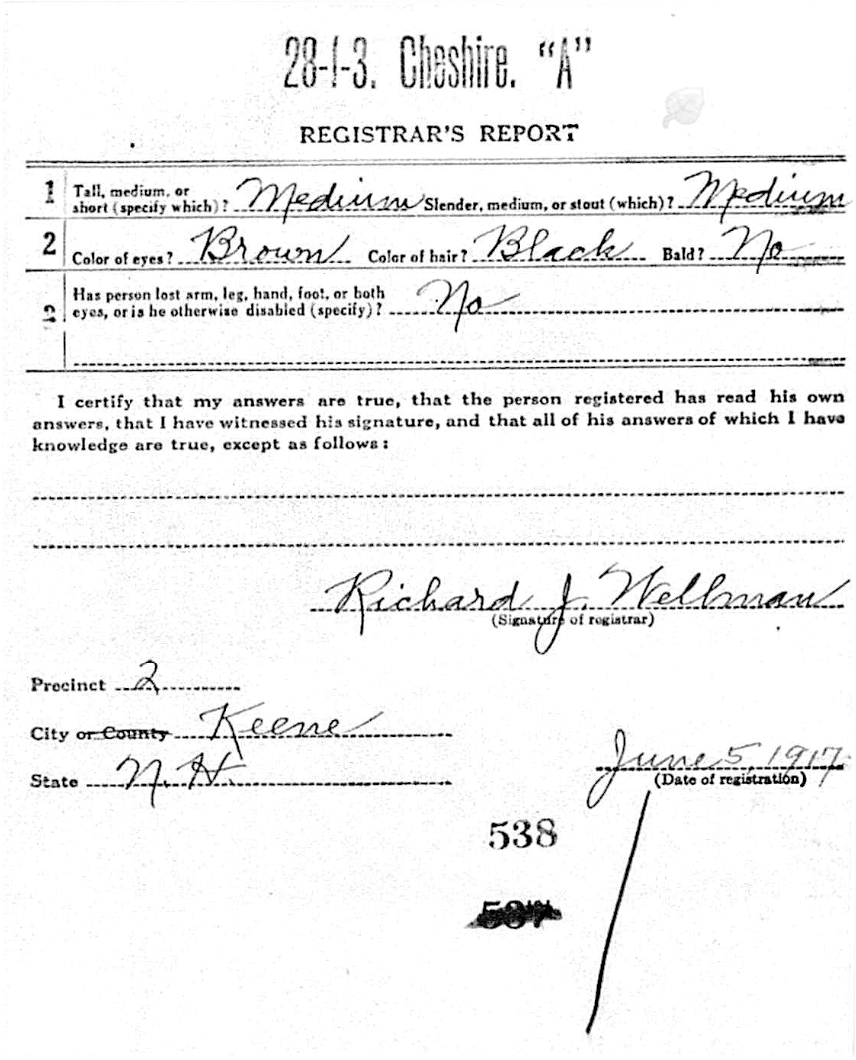 28-1-3. Cheshire. "A"
REGISTRAR'S REPORT
1 Tall, medium, or short (specify which)? Medium Slender, medium, or stout (which)? Medium
2 Color of eyes? Brown Color of hair? Black Bald? No
3 Has person lost arm, leg, hand, foot, or both
eyes, or is he otherwise disabled (specify)? No
I certify that my answers are true, that the person registered has read his own
answers, that I have witnessed his signature, and that all of his answers of which I have
knowledge are true, except as follows:
Richard J. Wellman
(Signature of registrar)
Precinct 2
City or County Keene
State N. H.
June 5, 1917
(Date of registration)
538
537